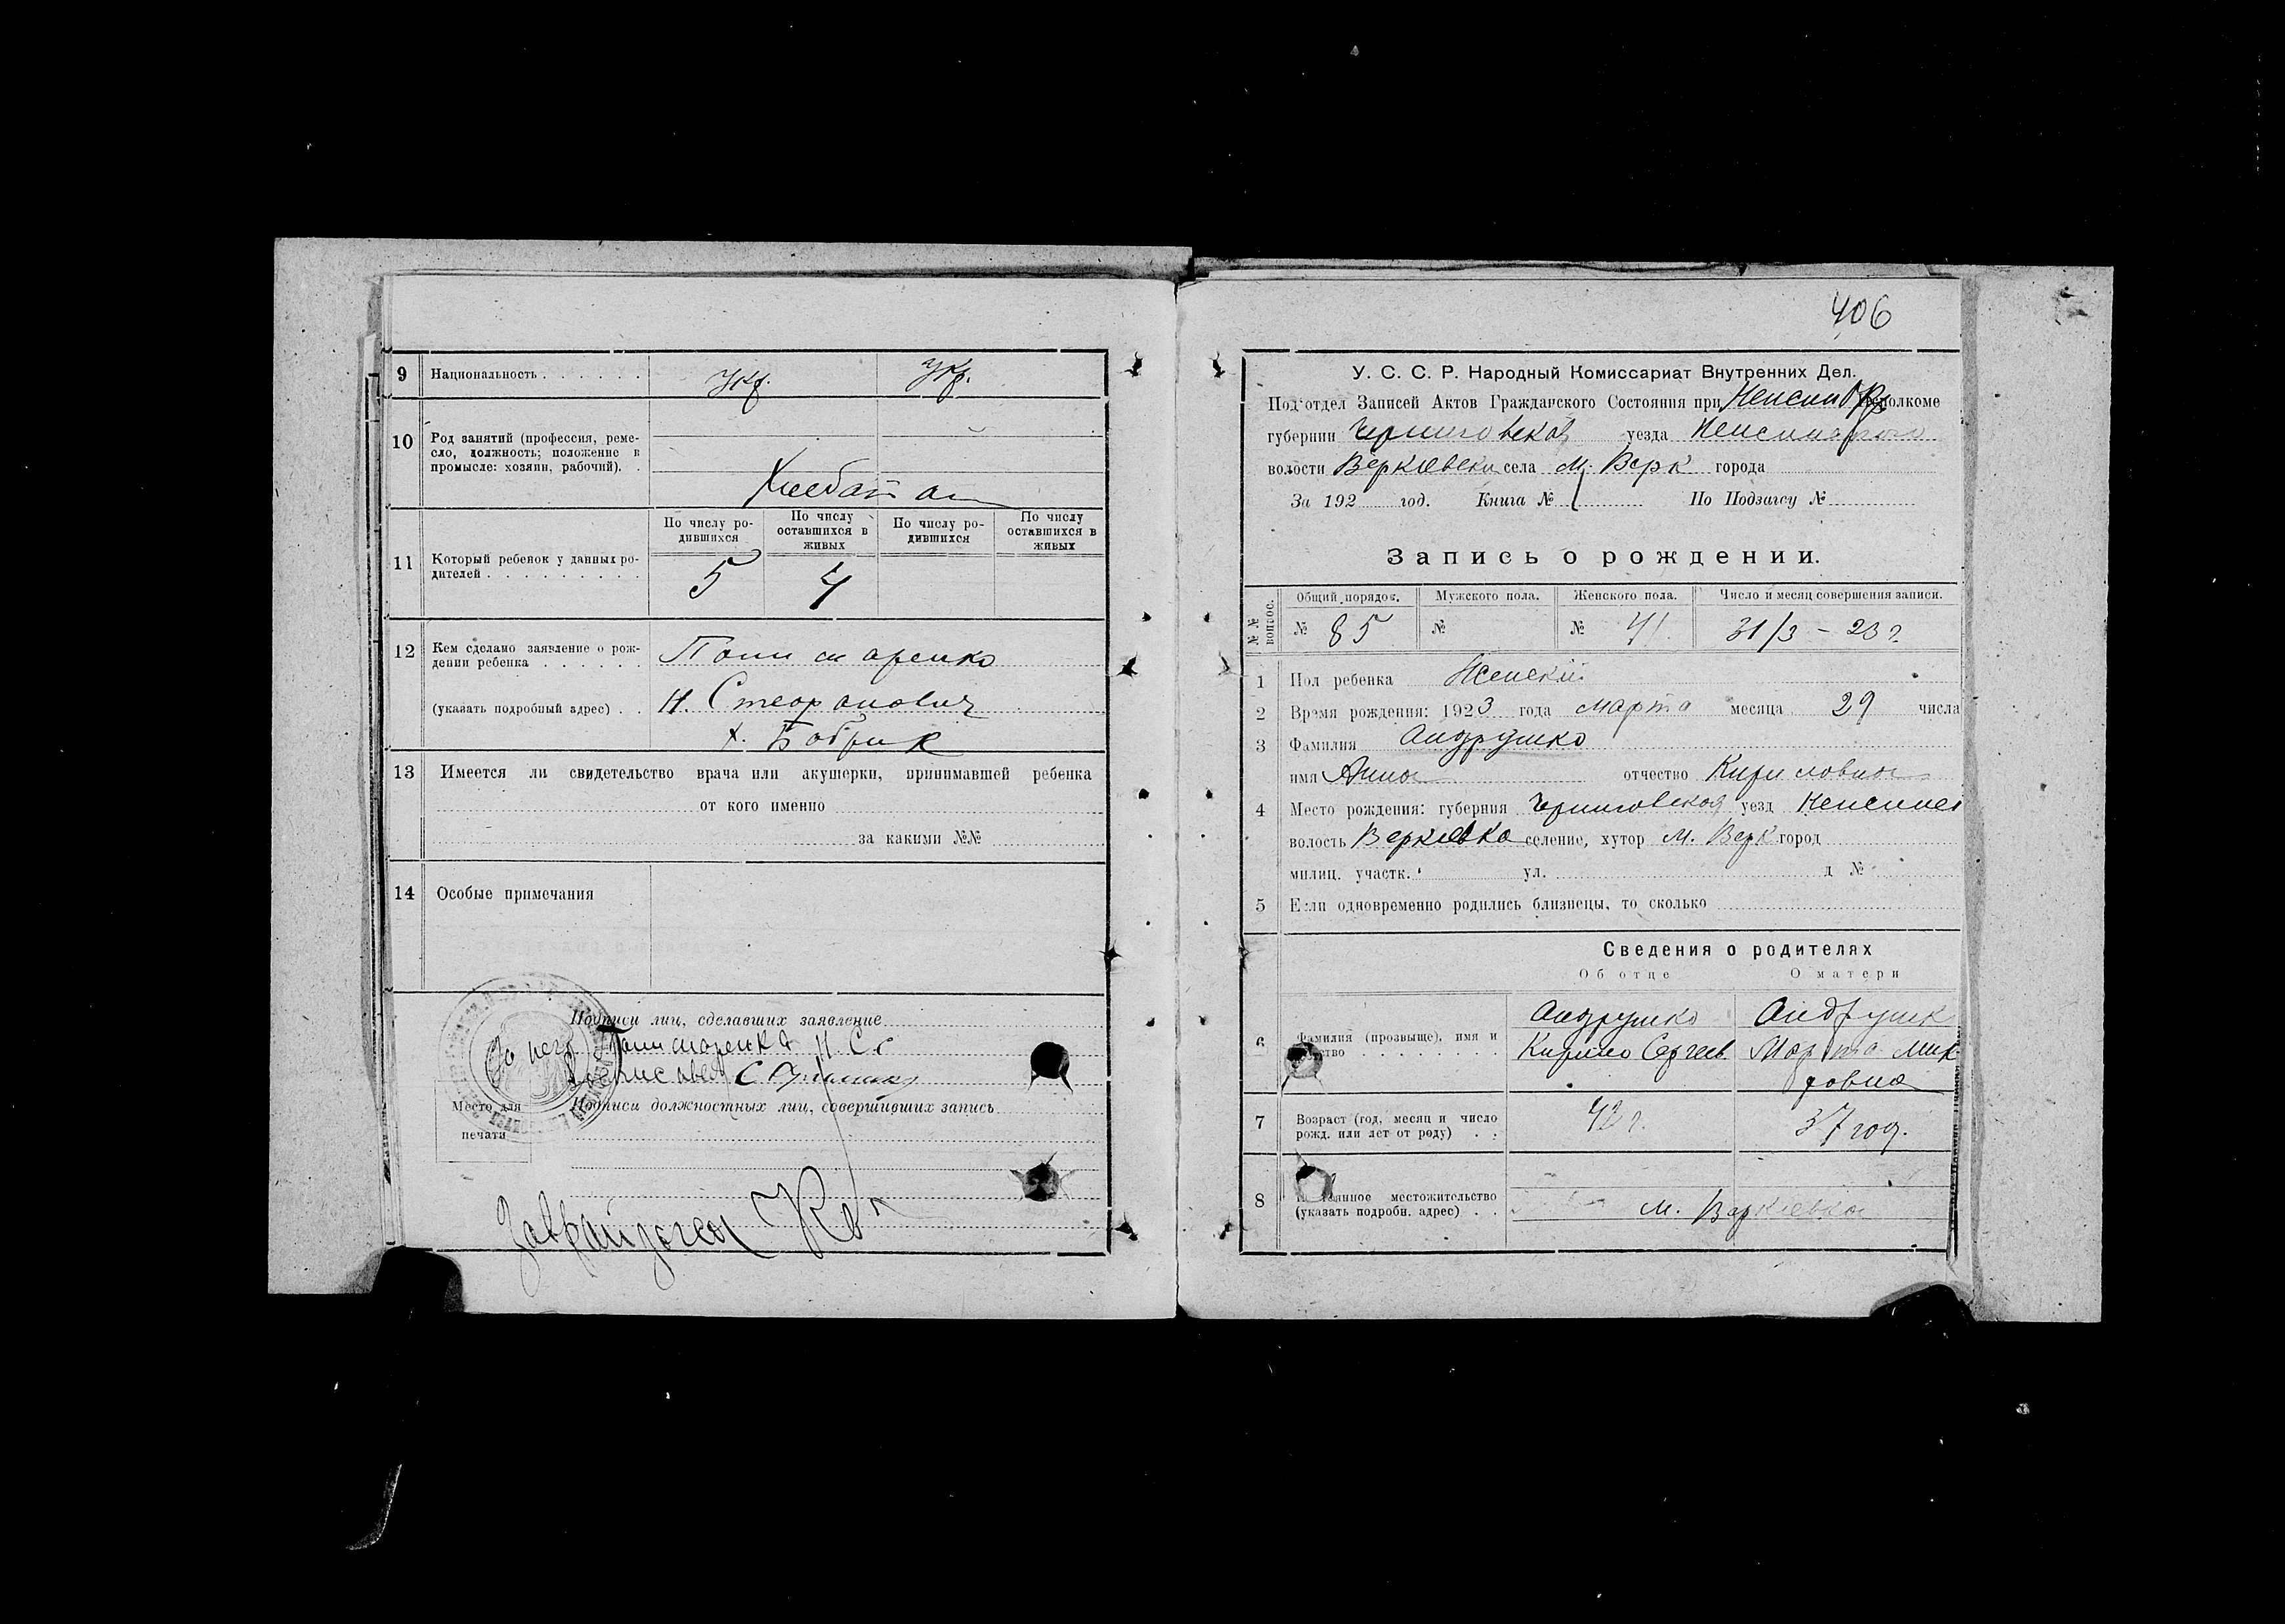 9 Национальность . . . . . . Укр. Укр.
10 Род занятий (профессия, реме-
сло, должность; положение в
промысле: хозяин, рабочий). .
Хлебопаш
11 Который ребенок у данных ро-
дителей . . . . . . . . .
По числу ро-
дившихся
По числу
оставшихся в
живых
По числу ро-
дившихся
По числу
оставшихся в
живых
5 4
12 Кем сделано заявление о рож-
дении ребенка . . . . . .
(указать подробный адрес) . . Н. Стефанович
х. Бобрик
13 Имеется ли свидетельство врача или акушерки, принимавшей ребенка
от кого именно
за какими №№
14 Особые примечания
Подписи лиц, сделавших заявление
Место для
печати
Подписи должностных лиц, совершивших запись
406
У. С. С. Р. Народный Комиссариат Внутренних Дел.
Под‘отдел Записей Актов Гражданского Состояния при Исполкоме
губернии Черниговской уезда
волости Веркиевски села М. Верк города
За 192 год. Книга № По Подзагсу №
Запись о рождении.
№№ вопрос.
Общий порядок. Мужского пола. Женского пола. Число и месяц совершения записи.
№ 85 № № 41. 31/3 – 23 г
1 Пол ребенка Женский
2 Время рождения: 1923 года марта месяца 29 числа
3 Фамилия Андрушко
имя Анна отчество Кириловна
4 Место рождения: губерния Черниговская уезд
волость Веркиевка селение, хутор М. Верк город
милиц. участк. ул. д №
5 Если одновременно родились близнецы, то сколько
Сведения о родителях
Об отце О матери
6 Фамилия (прозвыще), имя и
. . . . . . . .
Андрушко
Кирило Сергеев
Андрушк
Марта Мик-
ровна
7 Возраст (год, месяц и число
рожд. или лет от роду) . . 42 г. 37 год.
8 местожительство
(указать подробн. адрес) . . М. Варкиевка